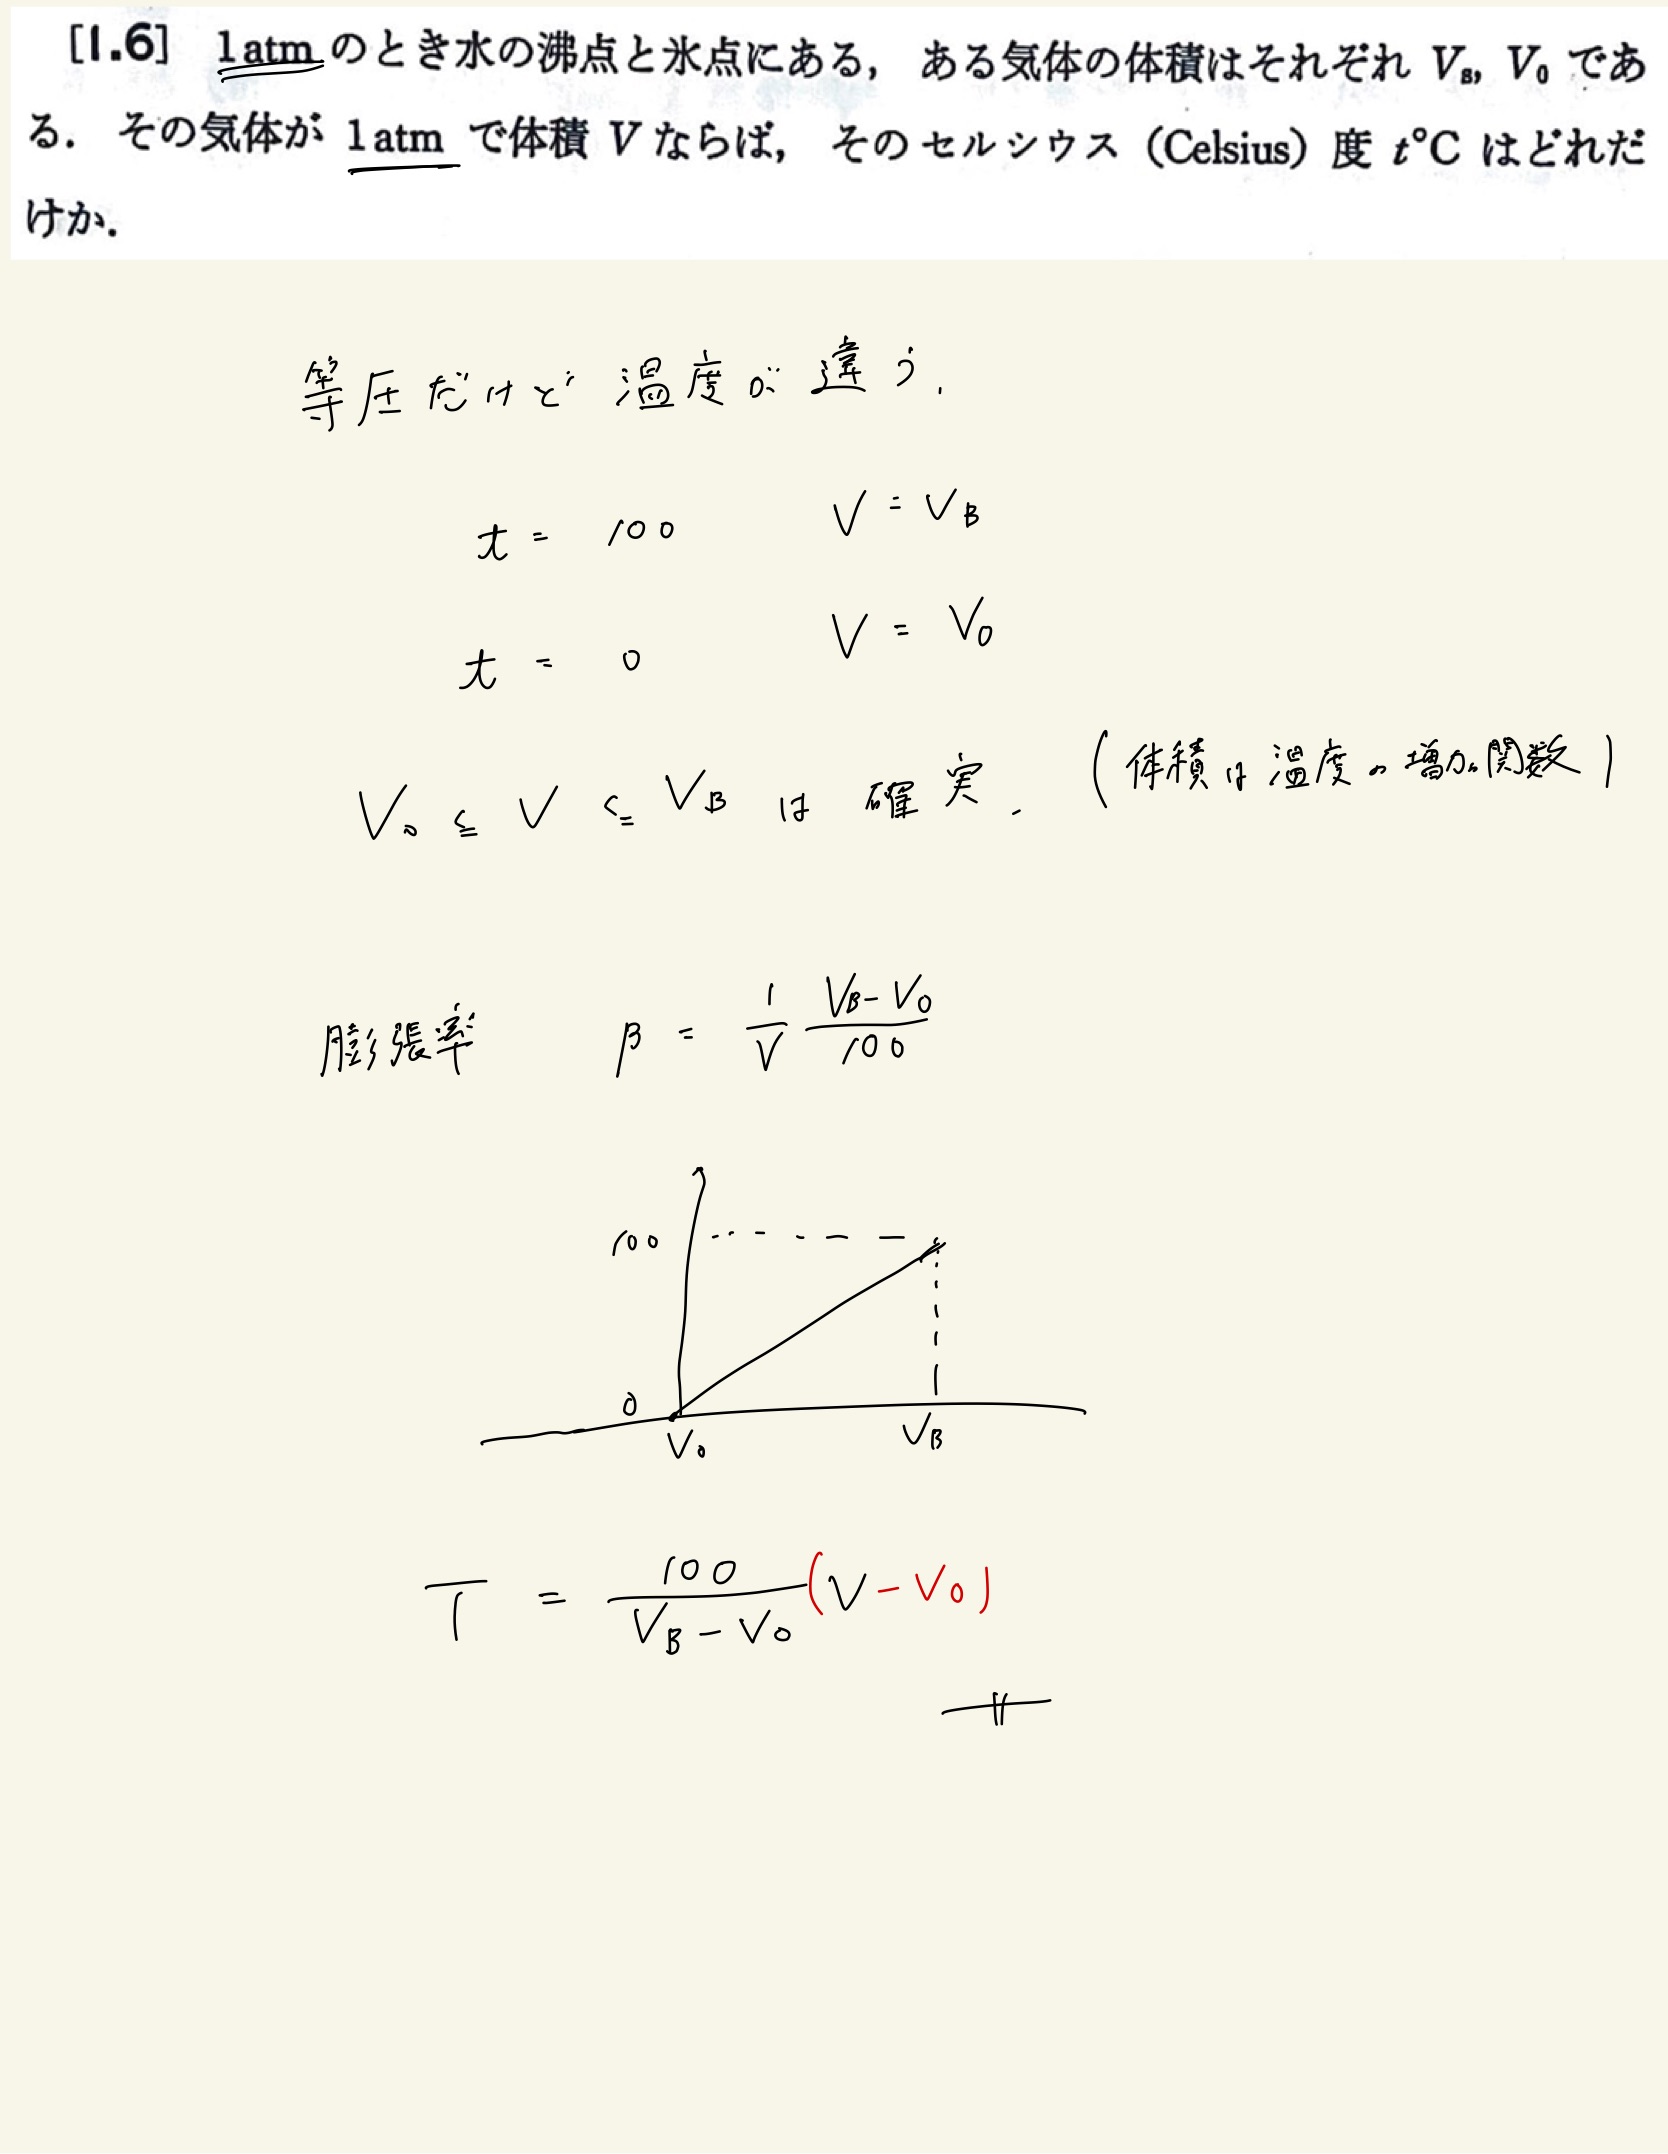 [1.6] 1atmのとき水の沸点と氷点にある，ある気体の体積はそれぞれ V_B, V_0 であ
る．その気体が 1atm で体積 V ならば，そのセルシウス（Celsius）度 t°C はどれだ
けか．
等圧だけど 温度が 違う.
t = 100 V = V_B
t = 0 V = V_0
V_0 ≦ V ≦ V_B は 確実. (体積は温度の増加関数)
膨張率 β = 1/V (V_B - V_0)/100
100
0
V_0 V_B
T = 100/(V_B - V_0) (V - V_0)